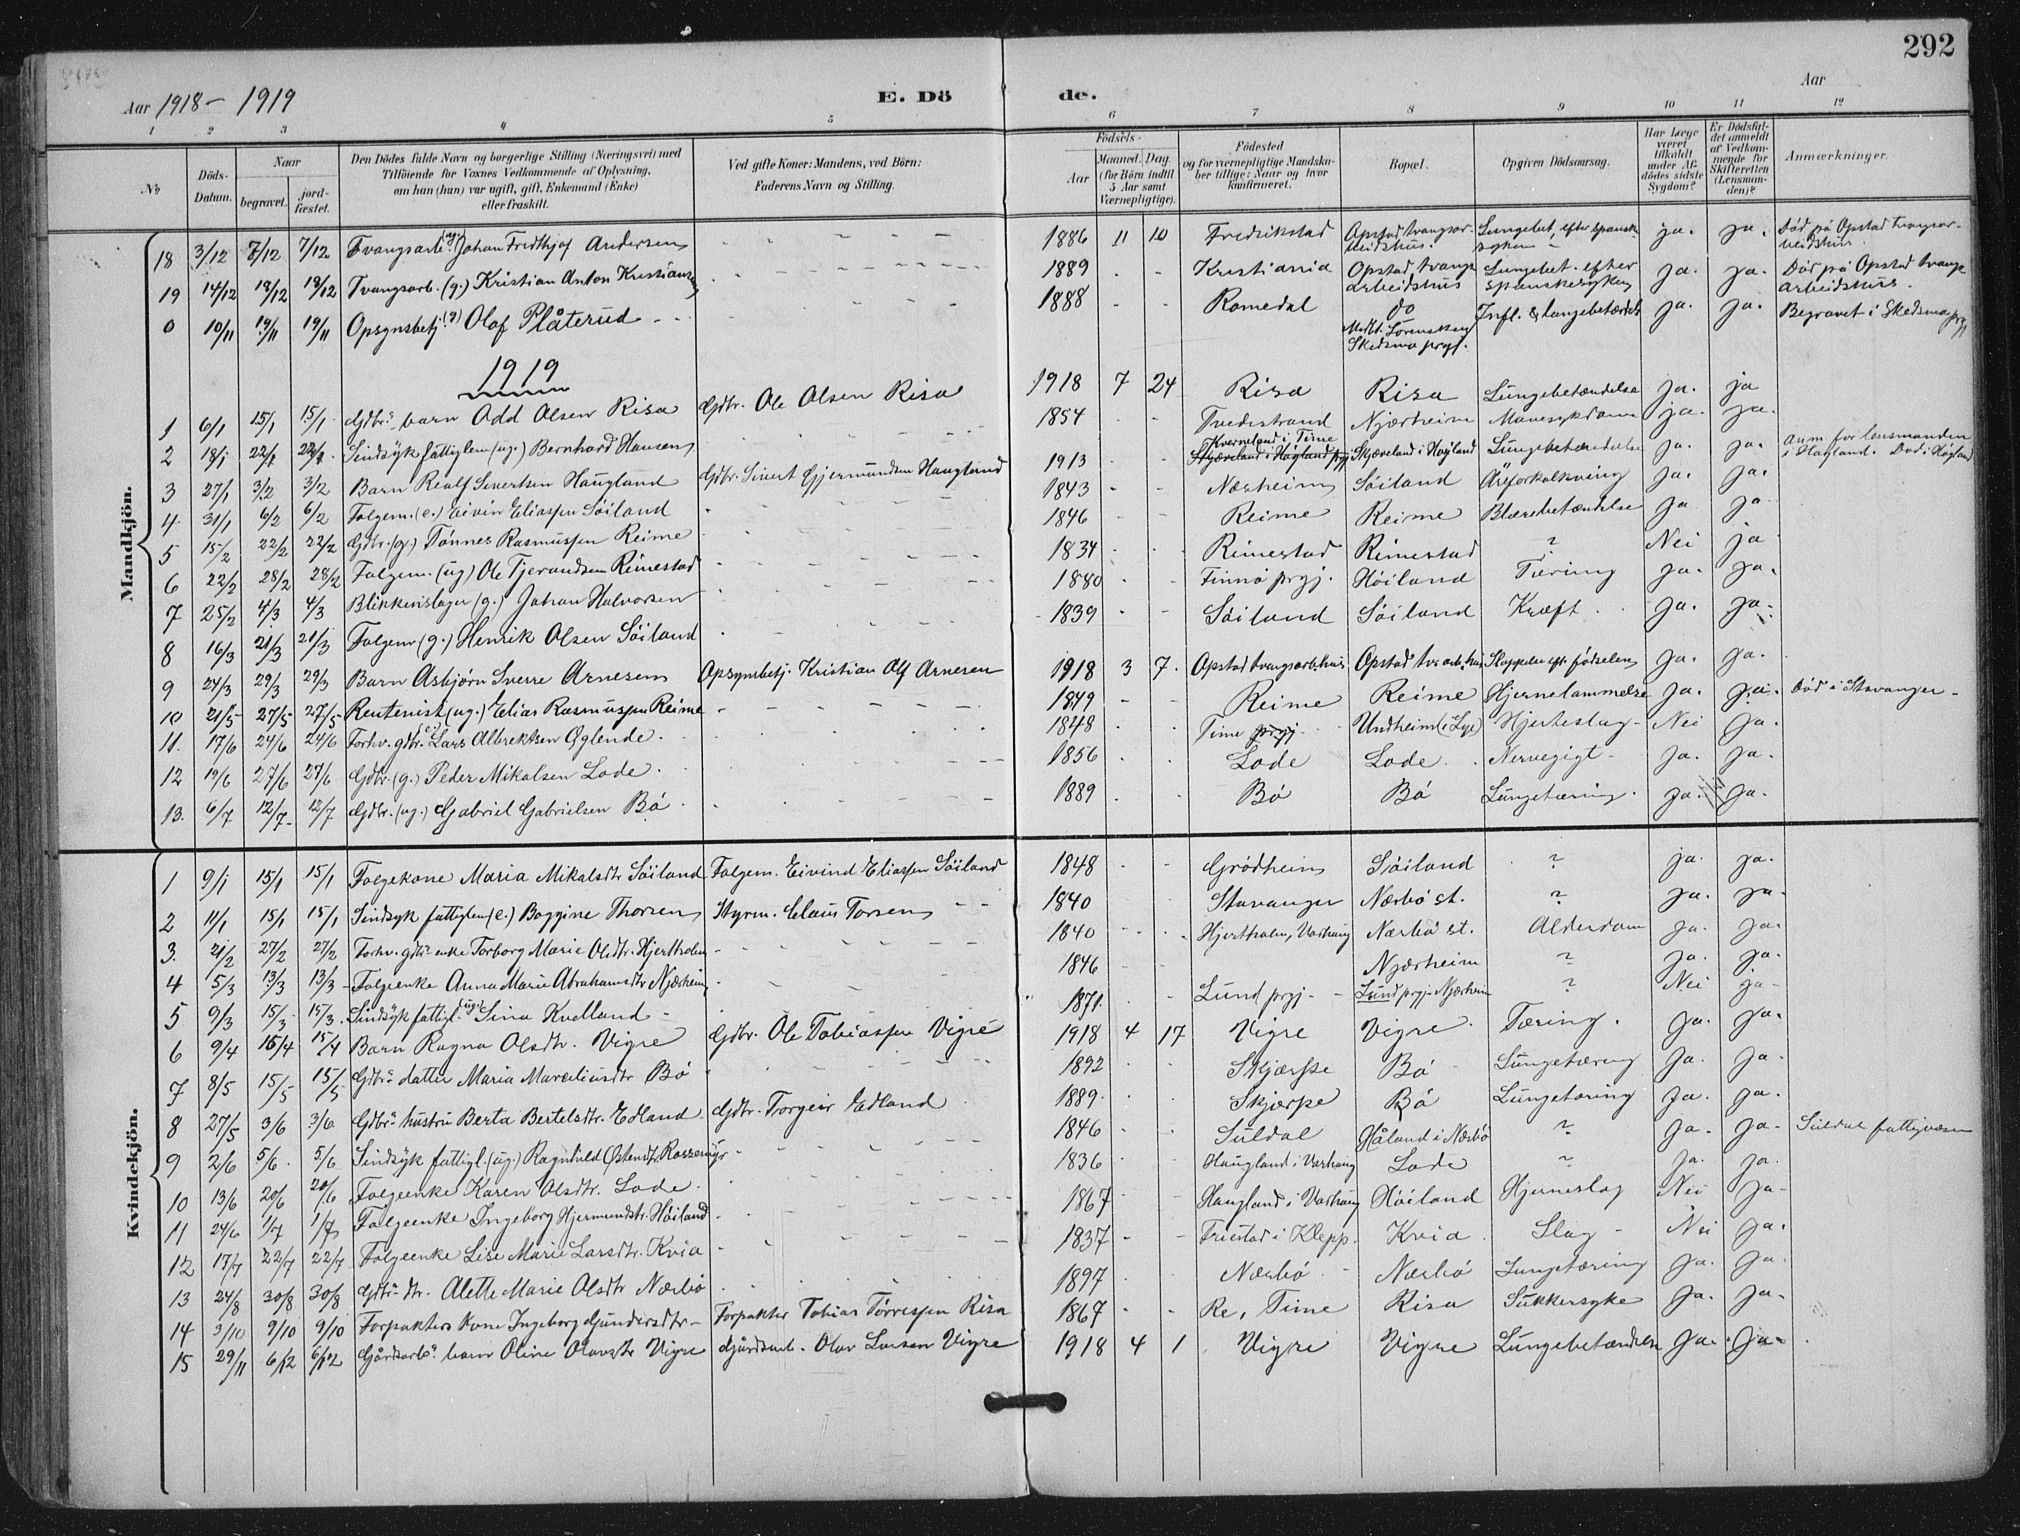 292
Aar 1918 – 1919
E. Dö de.
Aar
1 2 3 4 5 6 7 8 9 10 11 12
No
Döds-Datum.
Naar
begravet.
jord-fæstet.
Den Dödes fulde Navn og borgerlige Stilling (Næringsvei) med
Tilföiende for Voxnes Vedkommende af Oplysning,
om han (hun) var ugift, gift, Enkemand (Enke)
eller fraskilt.
Ved gifte Koner: Mandens, ved Börn:
Faderens Navn og Stilling.
Födsels-
Aar
Maaned. Dag.
(for Börn indtil
5 Aar samt
Værnepligtige).
Födested
og for værnepligtige Mandska-
ber tillige: Naar og hvor
konfirmeret.
Bopæl.
Opgiven Dödsaarsag.
Har Læge
været
tilkaldt
under Af-
dödes sidste
Sygdom?
Er Dödsfal-
det anmeldt
af Vedkom-
mende for
Skifteretten
(Lensman-
den)?
Anmærkninger.
Mandkjön.
18 3/12 7/12 7/12 Tvangsarb. (ug.) Johan Fredthjof Andersen 1886 11 10 Fredrikstad Opstad tvangsar-beidshus. Lungebet. efter spansk-syken ja. ja. Död på Opstad tvangsar-beidshus.
19 14/12 18/12 18/12 Tvangsarb. (g.) Kristian Anton Kristiansen 1889 Kristiania Opstad tvangs arbeidshus Lungebet. efter spanskesyken ja. ja. Död på Opstad tvangs arbeidshus.
0 10/11 19/11 19/11 Opsynsbetj. (g) Olaf Plåterud 1888 Romedal do Skedsmo prgj. Infl. & Lungebetændels ja. ja. Begravet i Skedsmo prgj
1919
1 6/1 15/1 15/1 Gdbr.s barn Odd Olsen Risa Gdbr. Ole Olsen Risa 1918 7 24 Risa Risa Lungebetændelse ja. ja
2 18/1 22/1 22/1 Sindsyk fattiglem (ug.) Bernhard Hansen 1854 Tvedestrand Njærheim Mavesykdom ja. ja.
3 27/1 3/2 3/2 Barn Realf Sivertsen Haugland Gdbr. Sivert Gjermundsen Haugland 1913 Kverneland i Time Skjæveland i Høgland prgj Skjæveland i Høyland Lungebetændelse ja. ja. anm for lensmanden i Høgland. Död i Høgland
4 31/1 6/2 6/2 Folgem. (e.) Eivin Eliassen Söiland 1843 Nærheim Söiland Åreforkalkning ja. ja.
5 15/2 22/2 22/2 Gdbr. (g.) Tönnes Rasmussen Reime 1846 Reime Reime Blærebetændelse ja ja
6 22/2 28/2 28/2 Folgem. (ug) Ole Tjerandsen Rimestad 1834 Rimestad Rimestad ? Nei ja
7 25/2 4/3 4/3 Blikkenslager (g.) Johan Halvorsen 1880 Finnö prgj. Höiland Tæring ja. ja.
8 16/3 21/3 21/3 Folgem (g.) Henrik Olsen Söiland 1839 Söiland Söiland Kræft ja. ja.
9 24/3 29/3 29/3 Barn Asbjörn Sverre Arnesen Opsynsbetj. Kristian Alf Arnesen 1918 3 7. Opstad tvangsarb.hus Opstad tvs arb.hus Slappelse eft. födselen ja. ja.
10 21/5 27/5 27/5 Rentenist (ug.) Elias Rasmussen Reime 1849 Reime Reime Hjernelammelse ja. ja. Död i Stavanger
11. 17/6 24/6 24/6 Forhv. gdbr. (e.) Lars Albrektsen Öglende 1848 Time prgj Undheim (i Lye) Hjerteslag Nei ja.
12 19/6 27/6 27/6 Gdbr. (g.) Peder Mikalsen Lode 1856 Lode Lode Nervegigt ja. ja.
13. 6/7 12/7 12/7 Gdbr. (ug.) Gabriel Gabrielsen Bö 1889 Bö Bö Lungetæring. ja. ja.
Kvindekjön.
1 9/1 15/1 15/1 Folgekone Maria Mikalsdtr Söiland Folgem. Eivind Eliassen Söiland 1848 Grödheim Söiland ? ja. ja.
2 11/1 15/1 15/1 Sindsyk fattiglem (e.) Boggine Thorsen Styrm. Claus Torsen 1840 Stavanger Nærbö st. ? ja. ja.
3. 21/2 27/2 27/2 Forhv. gdbr enke Torborg Marie Olsdtr. Hjertholm 1840 Hjertholm, Varhaug Nærbö st. Alderdom ja. ja.
4 5/3 13/3 13/3 Folgeenke Anna Marie Abrahamsdtr Njærheim 1846 Njærheim ? ja. ja.
5 9/3 15/3 15/3. Sindsyk fattigl. (ug.) Sina Kvelland 1871. Lund prgj. Lund prgj. Njærheim ? Nei ja
6 9/4 15/4 15/4 Barn Ragna Olsdtr. Vigre Gdbr. Ole Tobiassen Vigre 1918 4 17 Vigre Vigre Tæring. ja. ja.
7 8/5 15/5 15/5 Gdbrs datter Maria Marceliusdtr Bö 1892 Skjærpe Bö Lungetæring ja. ja.
8 27/5 3/6 3/6 Gdbrs hustru Berta Bertelsdtr. Edland Gdbr. Torgeir Edland 1889. Skjærpe Bö Lungetæring ja. ja.
9 2/6 5/6. 5/6 Sindsyk fattigl. (ug.) Ragnhild Östensdtr. 1846 Suldal Håland i Nærbö ? ja. ja. Suldal fattigvæsen
10 13/6 20/6 20/6 Folgeenke Karen Olsdtr. Lode 1836 Haugland i Varhaug Lode ? ja. ja.
11 24/6 1/7 1/7 Folgeenke Ingeborg Hjermundsdtr. Höiland 1867 Haugland i Varhaug Höiland Hjerneslag Nei ja
12 17/7 22/7 22/7 Folgeenke Lise Marie Larsdtr. Kvia 1837 Friestad i Klepp. Kvia Slag Nei ja.
13 24/8 30/8 30/8 Gdbrs dtr. Alette Marie Olsdtr Nærbö 1897 Nærbö Nærbö Lungetæring ja. ja.
14 3/10 9/10 9/10 Forpakters kone Ingeborg Gundersdtr Forpakter Tobias Törressen Risa 1867 Re, Time Risa Sukkersyke ja. ja.
15 29/11 6/12 6/12 Gårdsarbs barn Oline Olavsdtr Vigre Gårdsarb. Olav Larsen Vigre 1918 4 1 Vigre Vigre Lungebetændelse ja. ja.